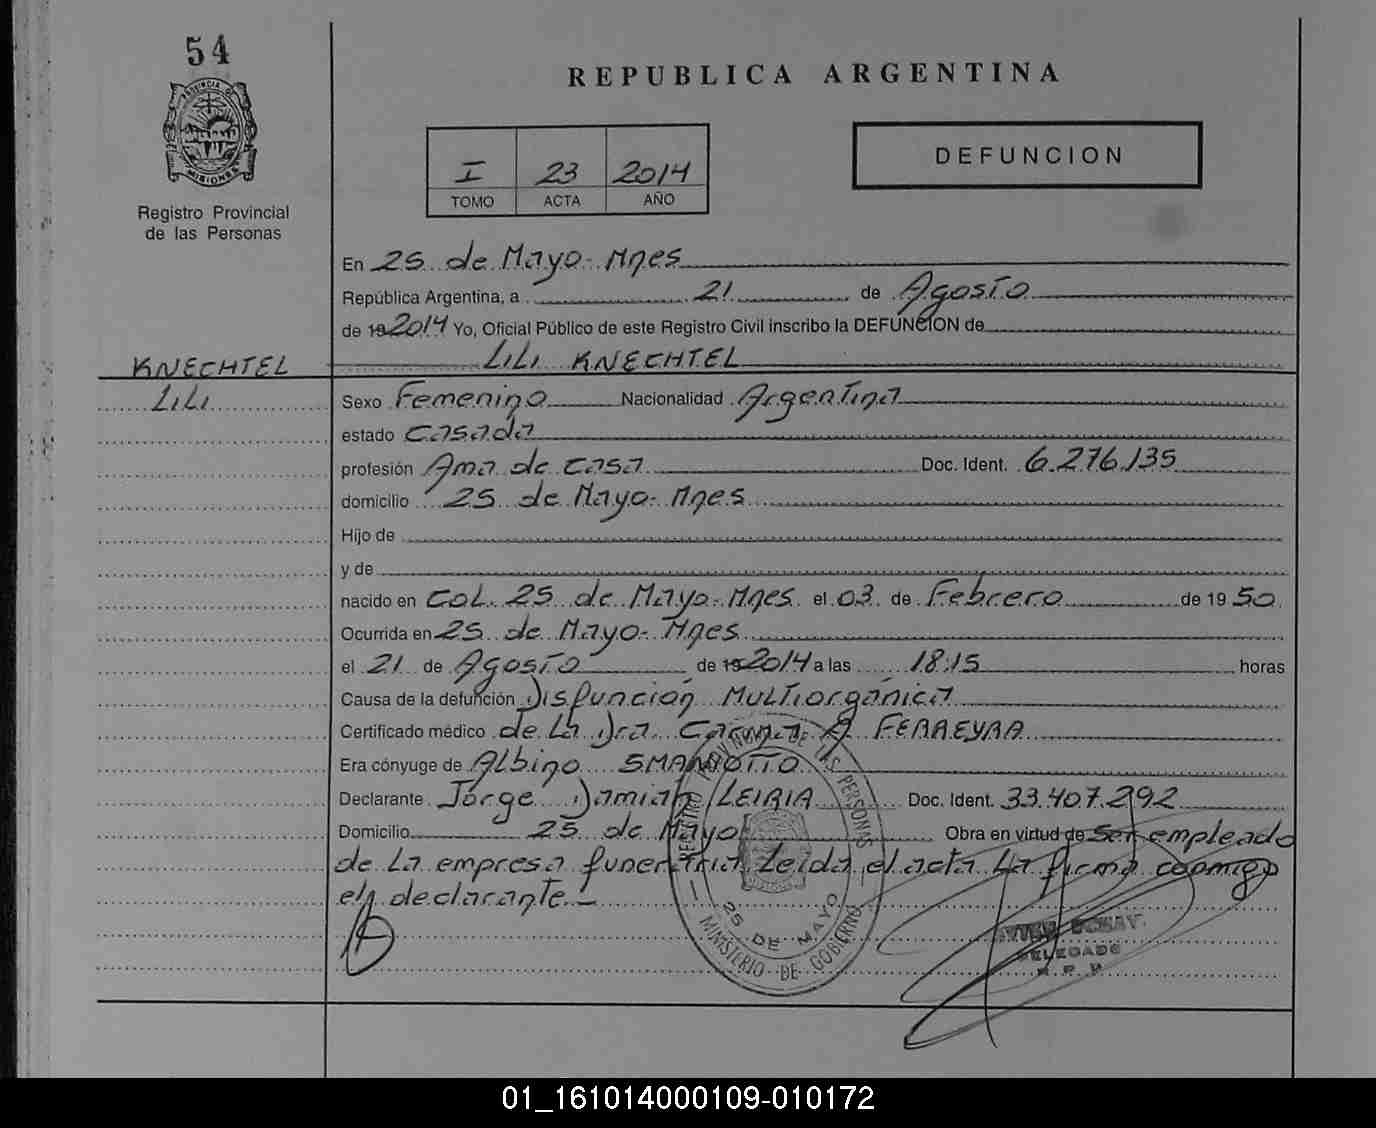 54
PROVINCIA DE
MISIONES
Registro Provincial
de las Personas
REPUBLICA ARGENTINA
I 23 2014
TOMO ACTA AÑO
DEFUNCION
En 25 de Mayo - Mnes
República Argentina, a 21 de Agosto
de 19 2014 Yo, Oficial Público de este Registro Civil inscribo la DEFUNCION de
KNECHTEL LILI KNECHTEL
LILI Sexo Femenino Nacionalidad Argentina
estado Casada
profesión Ama de casa Doc. Ident. 6.276.135
domicilio 25 de Mayo - Mnes
Hijo de
y de
nacido en Col. 25 de Mayo - Mnes el 03 de Febrero de 19 50
Ocurrida en 25 de Mayo - Mnes
el 21 de Agosto de 19 2014 a las 18:15 horas
Causa de la defunción Disfunción Multiorgánica
Certificado médico de La Dra. Carina A FERREYRA
Era cónyuge de Albino SMANIOTTO
Declarante Jorge Damian LEIRIA Doc. Ident. 33.407.292
Domicilio 25 de Mayo Obra en virtud de Ser empleado
de La empresa funeraria. Leida el acta La firma conmigo
el declarante. -
REGISTRO PROVINCIAL DE LAS PERSONAS
25 DE MAYO
MINISTERIO DE GOBIERNO
DELEGADO
01_161014000109-010172